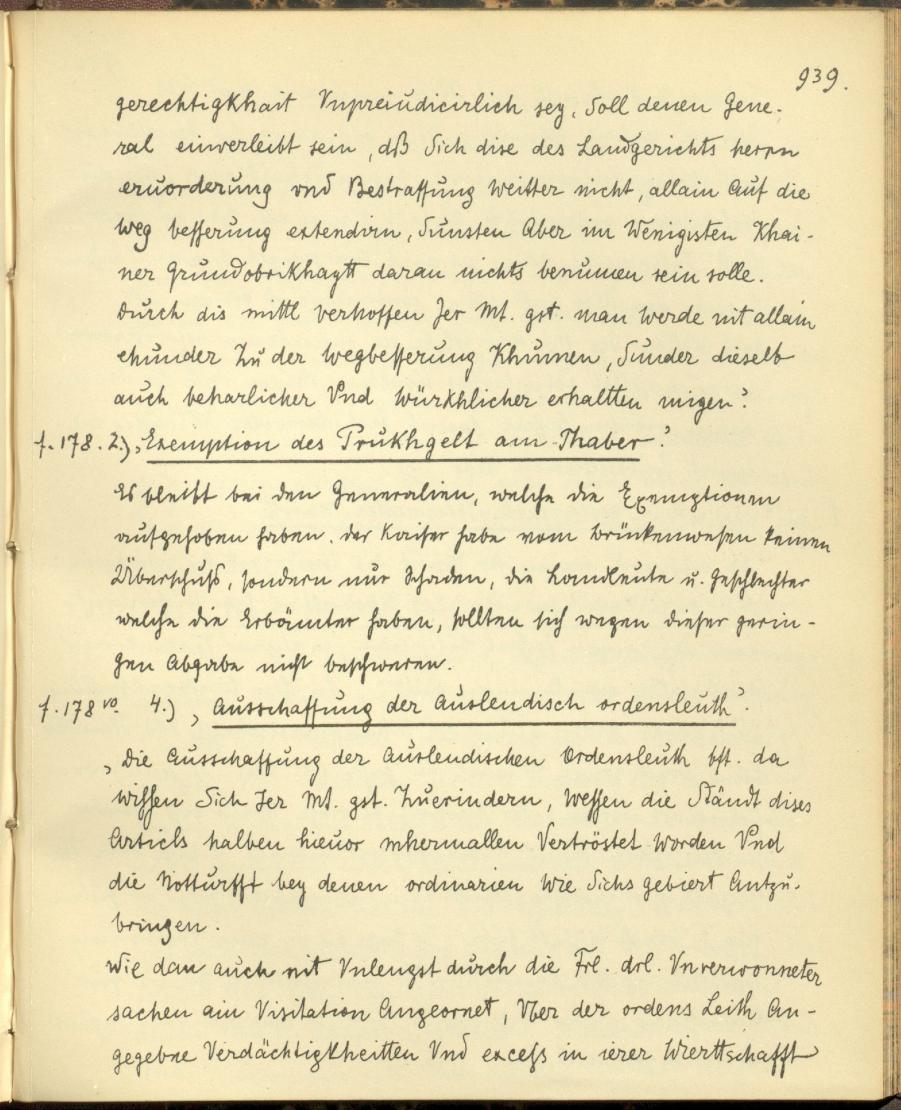 939.
gerechtigkhait Vnpreiudicirlich sey, Soll denen Gene-
ral einverleibt sein, dß Sich dise des Landgerichts herrn
eruorderung vnd Bestraffung weitter nicht, allain auf die
weg besserung extendirn, Sunsten Aber im Wenigisten Khai-
ner Grundobrikhaytt daran nichts benumen sein solle.
Durch dis mittl verhoffen Jer Mt. gst. man werde nit allain
ehunder Zu der wegbesserung Khumen, Sunder dieselb
auch beharlicher Vnd würkhlicher erhaltten migen?
f. 178. 2.) „Exemption des Prukhgelt am Thaber?
Es bleibt bei den Generalien, welche die Exemptionen
aufgehoben haben. der Kaiser habe vom Brückenwesen keinen
Überschuß, sondern nur Schaden, die Landleute u. Geschlechter
welche die Erbämter haben, sollten sich wegen dieser gerin-
gen Abgabe nicht beschweren.
f. 178 vo. 4.) „Ausschaffung der Auslendisch ordensleuth?
„Die Ausschaffung der Auslendischen Ordensleuth bft. da
wissen Sich Jer Mt. gst. Zuerindern, wessen die Ständt dises
Articls halben hieuor mhermallen Vertröstet worden Vnd
die Notturfft bey denen ordinarien wie Sichs gebiert Antzu-
bringen.
Wie dan auch nit Vnlengst durch die Frl. drl. Vnverwonneter
sachen ain Visitation Angeornet, Vber der ordens Leith An-
gegebne Verdächtigkheitten Vnd excess in ierer Wierttschafft